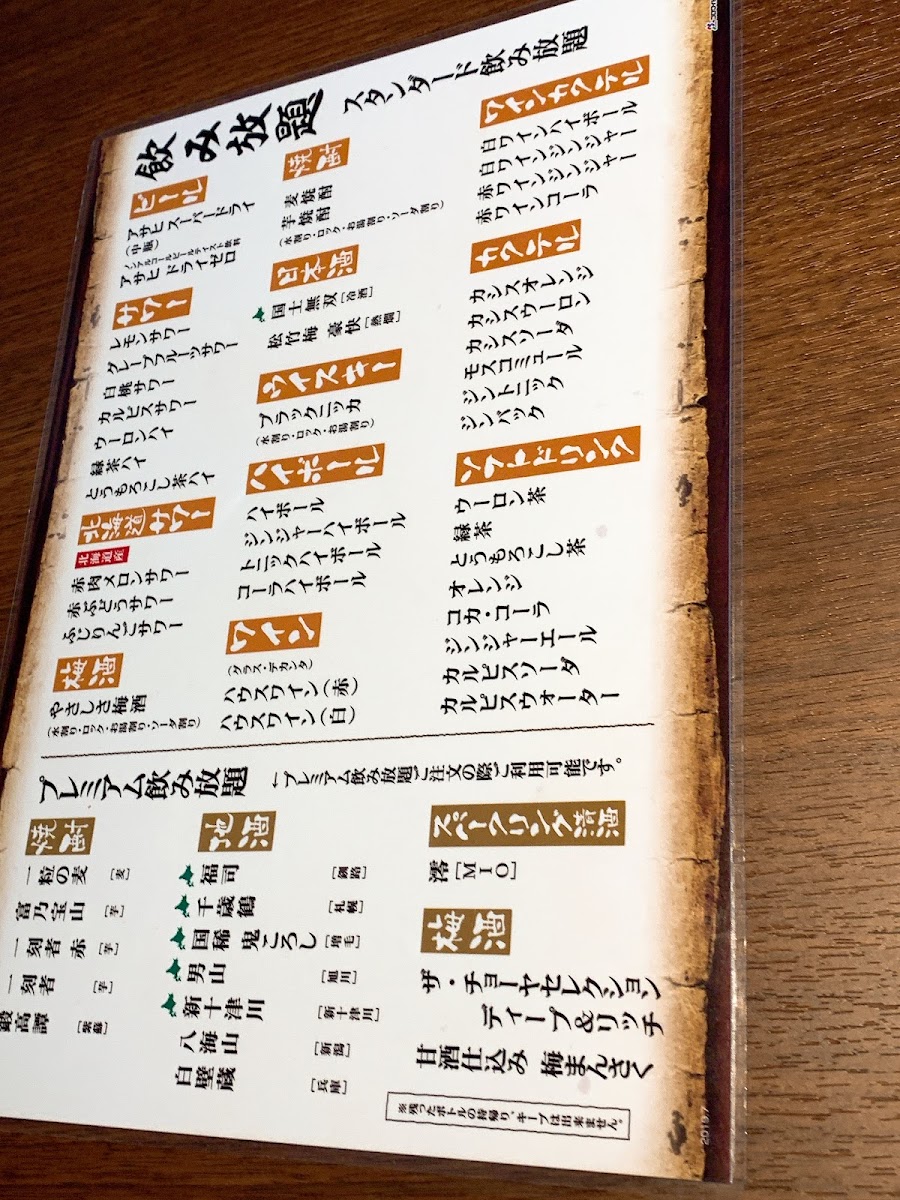 飲み放題
スタンダード飲み放題
ビール
アサヒスーパードライ
(中瓶)
ノンアルコールビールテイスト飲料
アサヒ ドライゼロ
サワー
レモンサワー
グレープフルーツサワー
白桃サワー
カルピスサワー
ウーロンハイ
緑茶ハイ
とうもろこし茶ハイ
北海道サワー
北海道産
赤肉メロンサワー
赤ぶどうサワー
ふじりんごサワー
梅酒
やさしさ梅酒
(水割り・ロック・お湯割り・ソーダ割り)
焼酎
麦焼酎
芋焼酎
(水割り・ロック・お湯割り・ソーダ割り)
日本酒
国士無双[冷酒]
松竹梅 豪快[熱燗]
ウイスキー
ブラックニッカ
(水割り・ロック・お湯割り)
ハイボール
ハイボール
ジンジャーハイボール
トニックハイボール
コーラハイボール
ワイン
(グラス・デカンタ)
ハウスワイン(赤)
ハウスワイン(白)
ワインカクテル
白ワインハイボール
白ワインジンジャー
赤ワインジンジャー
赤ワインコーラ
カクテル
カシスオレンジ
カシスウーロン
カシスソーダ
モスコミュール
ジントニック
ジンバック
ソフトドリンク
ウーロン茶
緑茶
とうもろこし茶
オレンジ
コカ・コーラ
ジンジャーエール
カルピスソーダ
カルピスウォーター
プレミアム飲み放題
←プレミアム飲み放題ご注文の際ご利用可能です。
焼酎
一粒の麦 [麦]
富乃宝山 [芋]
一刻者 赤 [芋]
一刻者 [芋]
鍛高譚 [紫蘇]
地酒
福司 [釧路]
千歳鶴 [札幌]
国稀 鬼ころし [増毛]
男山 [旭川]
新十津川 [新十津川]
八海山 [新潟]
白壁蔵 [兵庫]
スパークリング清酒
澪[MIO]
梅酒
ザ・チョーヤセレクション
ディープ&リッチ
甘酒仕込み 梅まんさく
※残ったボトルの持帰り、キープは出来ません。
2019.7